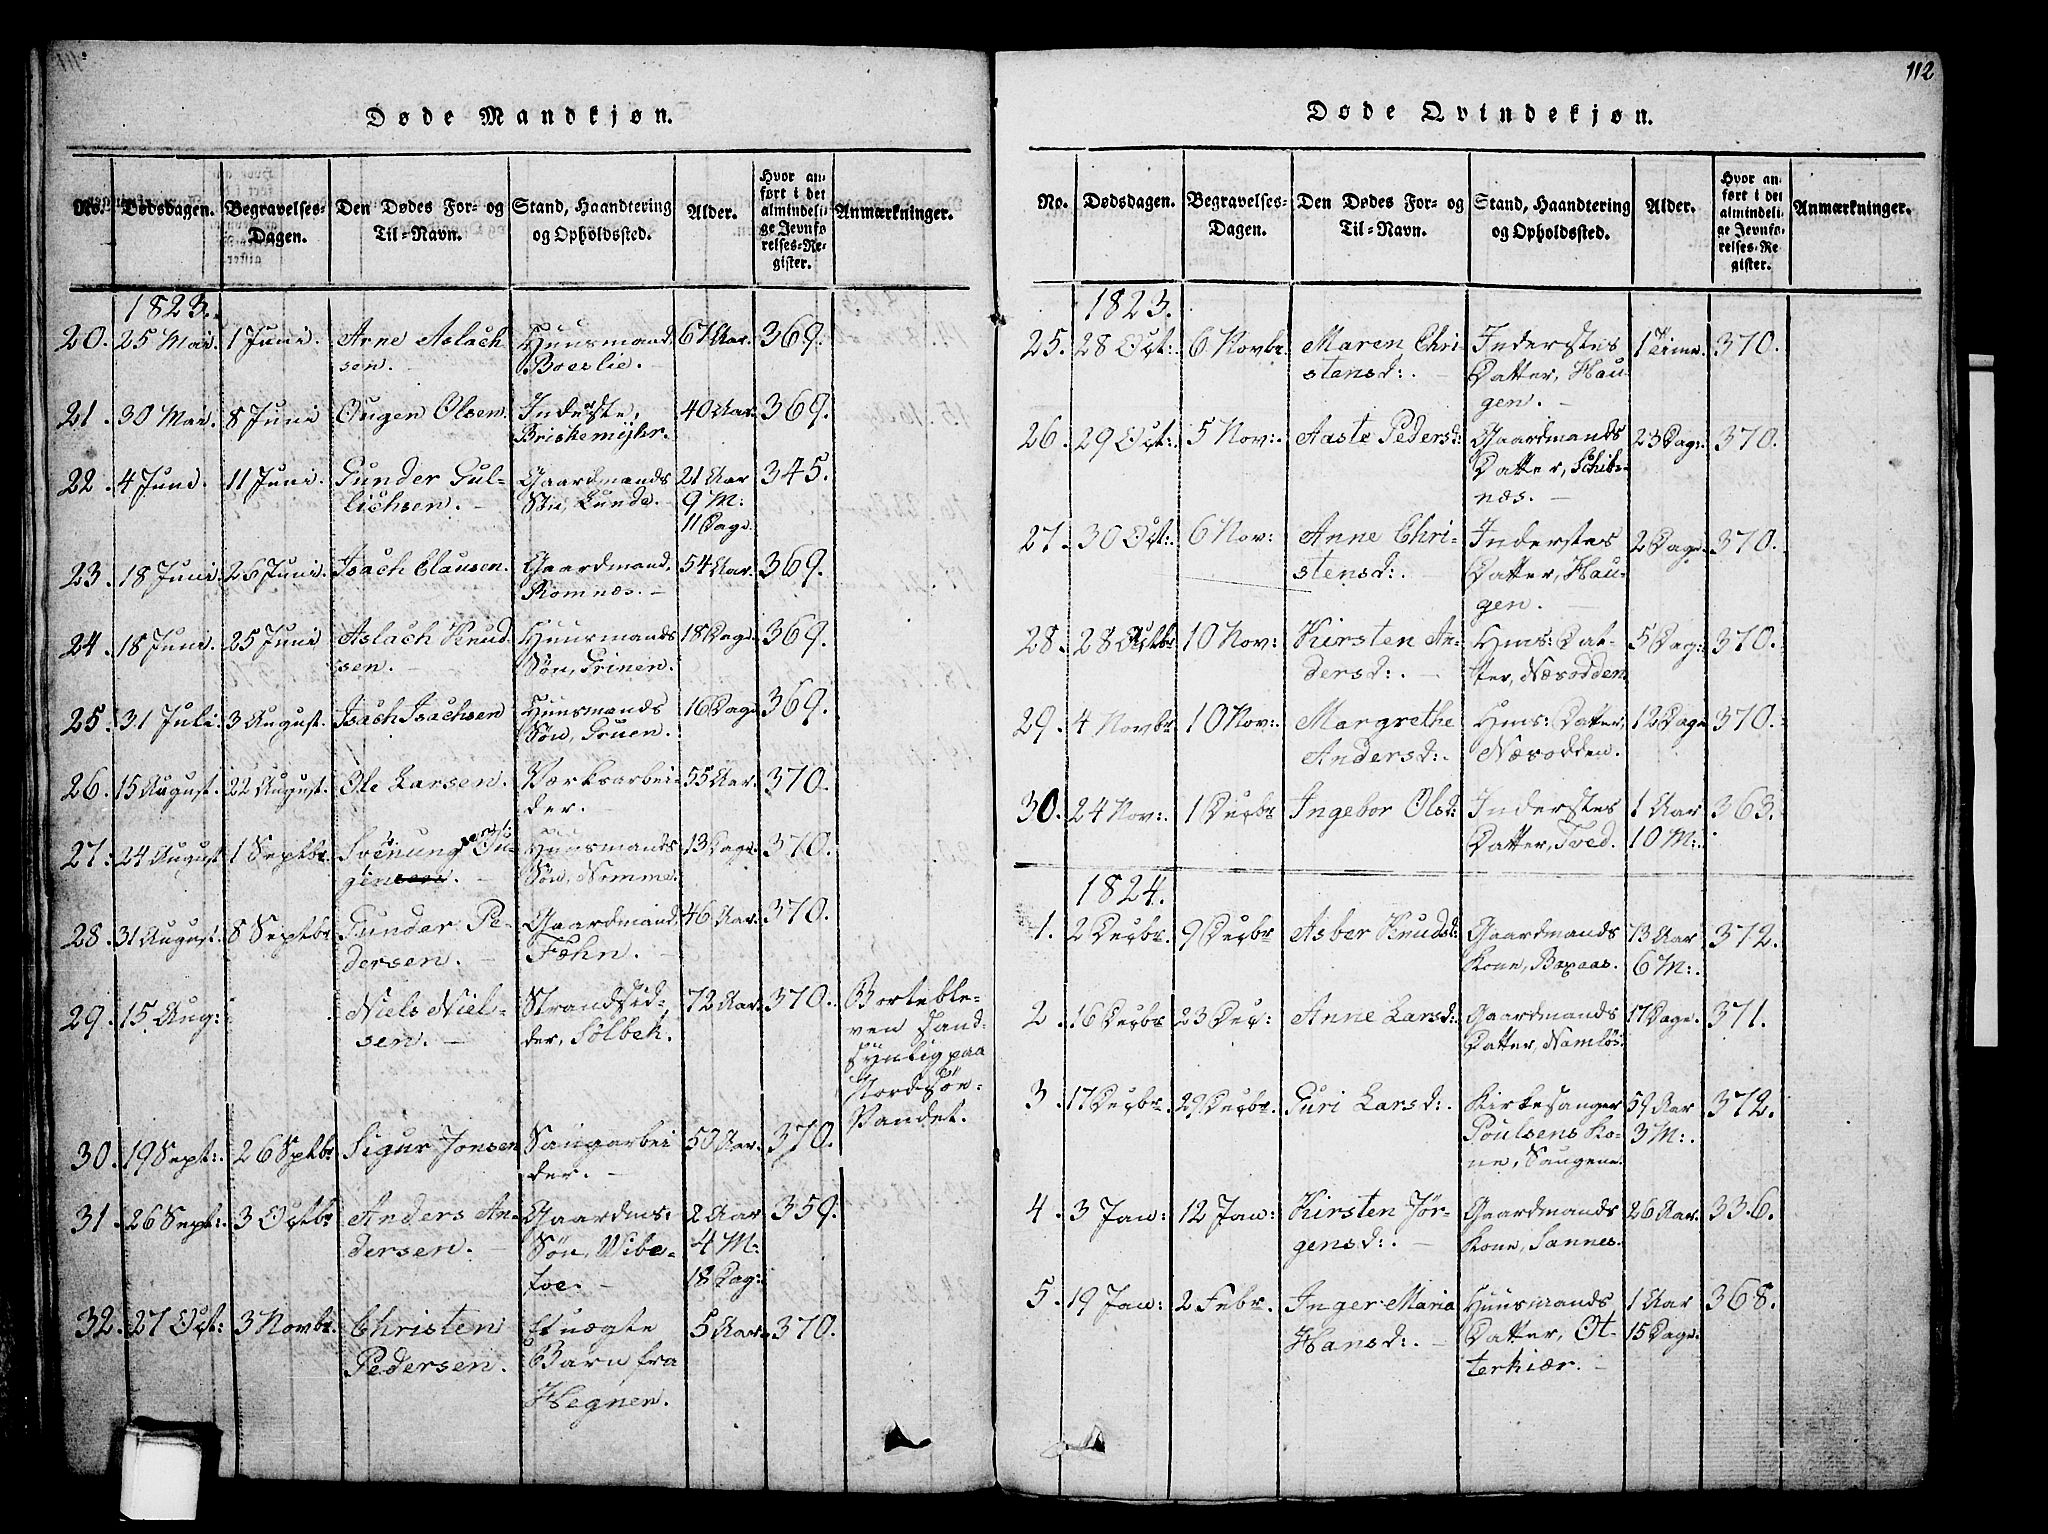 Døde Mandkjøn.
No. Dødsdagen. Begravelses-Dagen. Den Dødes For- og Til-Navn. Stand, Haandtering og Opholdssted. Alder. Hvor anført i det almindelige Jevnførelses-Register. Anmærkninger.
1823.
20. 25 Mai. 1 Juni. Arne Aslach Huusmand 67 Aar. 369.
sen. Boeslie.
21. 30 Mai. 8 Juni Ougen Olsen. Inderste, 40 Aar. 369.
Briskemyhr.
22. 4 Juni. 11 Juni. Gunder Gul- Gaardmands 21 Aar 345.
lichsen. Søn, Lunde. 9 M:
11 Dage.
23. 18 Juni. 25 Juni. Isach Clausen. Gaardmand, 54 Aar. 369.
Romnæs.
24. 18 Juni. 25 Juni Aslach Knud- Huusmands 18 Dage. 369.
sen. Søn, Grinen.
25. 31 Juli. 3 August. Isach Isachsen Huusmands 16 Dage 369.
Søn, Gruen.
26. 15 August. 22 August. Ole Larsen. Værksarbei- 55 Aar. 370.
der.
27. 24 August 1 Septbr. Svenung Huusmands 13 Dage. 370.
Søn, Nomme.
28. 31 August. 8 Septbr. Gunder Pe- Gaardmand, 46 Aar. 370.
dersen. Fæhn.
29. 15 Aug: Niels Niel- Strandsid- 72 Aar. 370. Borteble-
sen. der, Solbek. ven sand-
synlig paa
Nordsjøn-
Vandet.
30. 19 Sept: 26 Sptbr Sigur Jonsen Saugarbei 50 Aar. 370.
der.
31. 26 Sept: 3 Octbr Anders An- Gaardms: 2 Aar 359.
dersen. Søn, Wibe- 4 M:
toe. 18 Dag:
32. 27 Oct: 3 Novbr. Christen Et uægte 5 Aar. 370.
Pedersen. Barn fra
Hegnen.
112
Døde Qvindekjøn.
No. Dødsdagen. Begravelses-Dagen. Den Dødes For- og Til-Navn. Stand, Haandtering og Opholdssted. Alder. Hvor anført i det almindelige Jevnførelses-Register. Anmærkninger.
1823.
25. 28 Oct: 6 Novbr. Maren Chri- Inderstes 1 Time. 370.
stensd: Datter, Hau-
gen.
26. 29 Oct: 5 Nov: Aaste Pedersd: Gaardmands 23 Dag: 370.
Datter,
næs.
27. 30 Oct: 6 Nov: Anne Chri- Inderstes 2 Dage. 370.
stensd: Datter, Hau-
gen.
28. 28 Octbr 10 Nov: Kirsten An- Hms: Dat- 5 Dag: 370.
dersd: ter, Næsodden
29. 4 Novbr 10 Nov: Margrethe Hms: Datter, 12 Dage 370.
Andersd: Næsodden.
30. 24 Nov: 1 Decbr Ingebor Olsd: Inderstes 1 Aar 363.
Datter, Tved. 10 M:
1824.
1. 2 Decbr. 9 Decbr Asber Knudsd: Gaardmands 73 Aar 372.
Kone, Baxaas. 6 M:
2. 16 Decbr 23 Dec: Anne Larsd: Gaardmands 17 Dage. 371.
Datter, Namløs.
3. 17 Decbr. 29 Decbr. Guri Larsd: Kirkesanger 59 Aar 372.
Poulsens Ko- 3 M:
ne, Saugene.
4. 3 Jan: 12 Jan: Kirsten Jør- Gaardmands 26 Aar. 336.
gensd: Kone, Sannes.
5. 19 Jan: 2 Febr. Inger Maria Huusmands 1 Aar 368.
Hansd: Datter, Ot- 15 Dage.
terkiær.